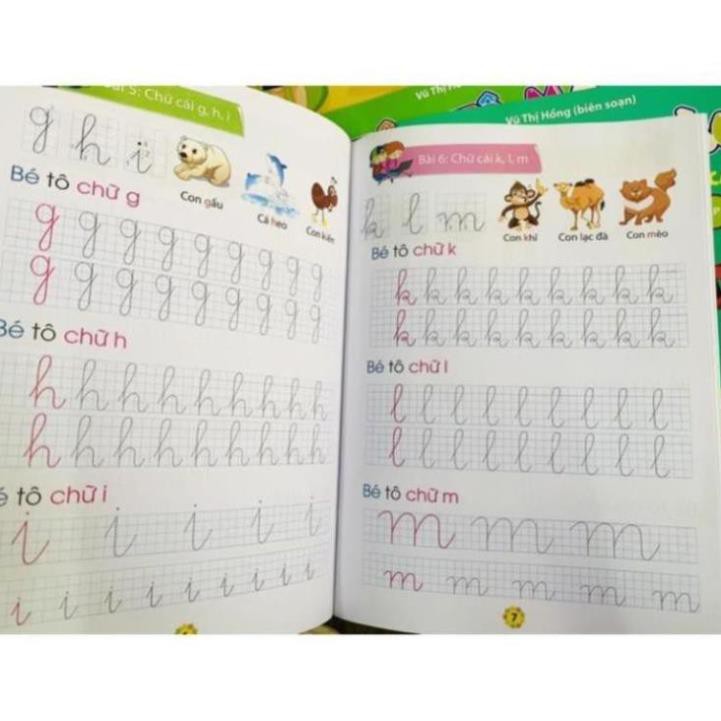 Vũ Thị Hồng (biên soạn)
5: Chữ cái g, h, i
g h i
Con gấu
Cá heo
Con kiến
Bé tô chữ g
g g g g g g g g g
g g g g g g g g g
Bé tô chữ h
h h h h h h h h h
h h h h h h h h h
tô chữ i
i i i i i
i i i i i i i i i
Bài 6: Chữ cái k, l, m
k l m
Con khỉ
Con lạc đà
Con mèo
Bé tô chữ k
k k k k k k k k k
k k k k k k k k k
Bé tô chữ l
l l l l l l l l l
l l l l l l l l l
Bé tô chữ m
m m m
m m m m m
7